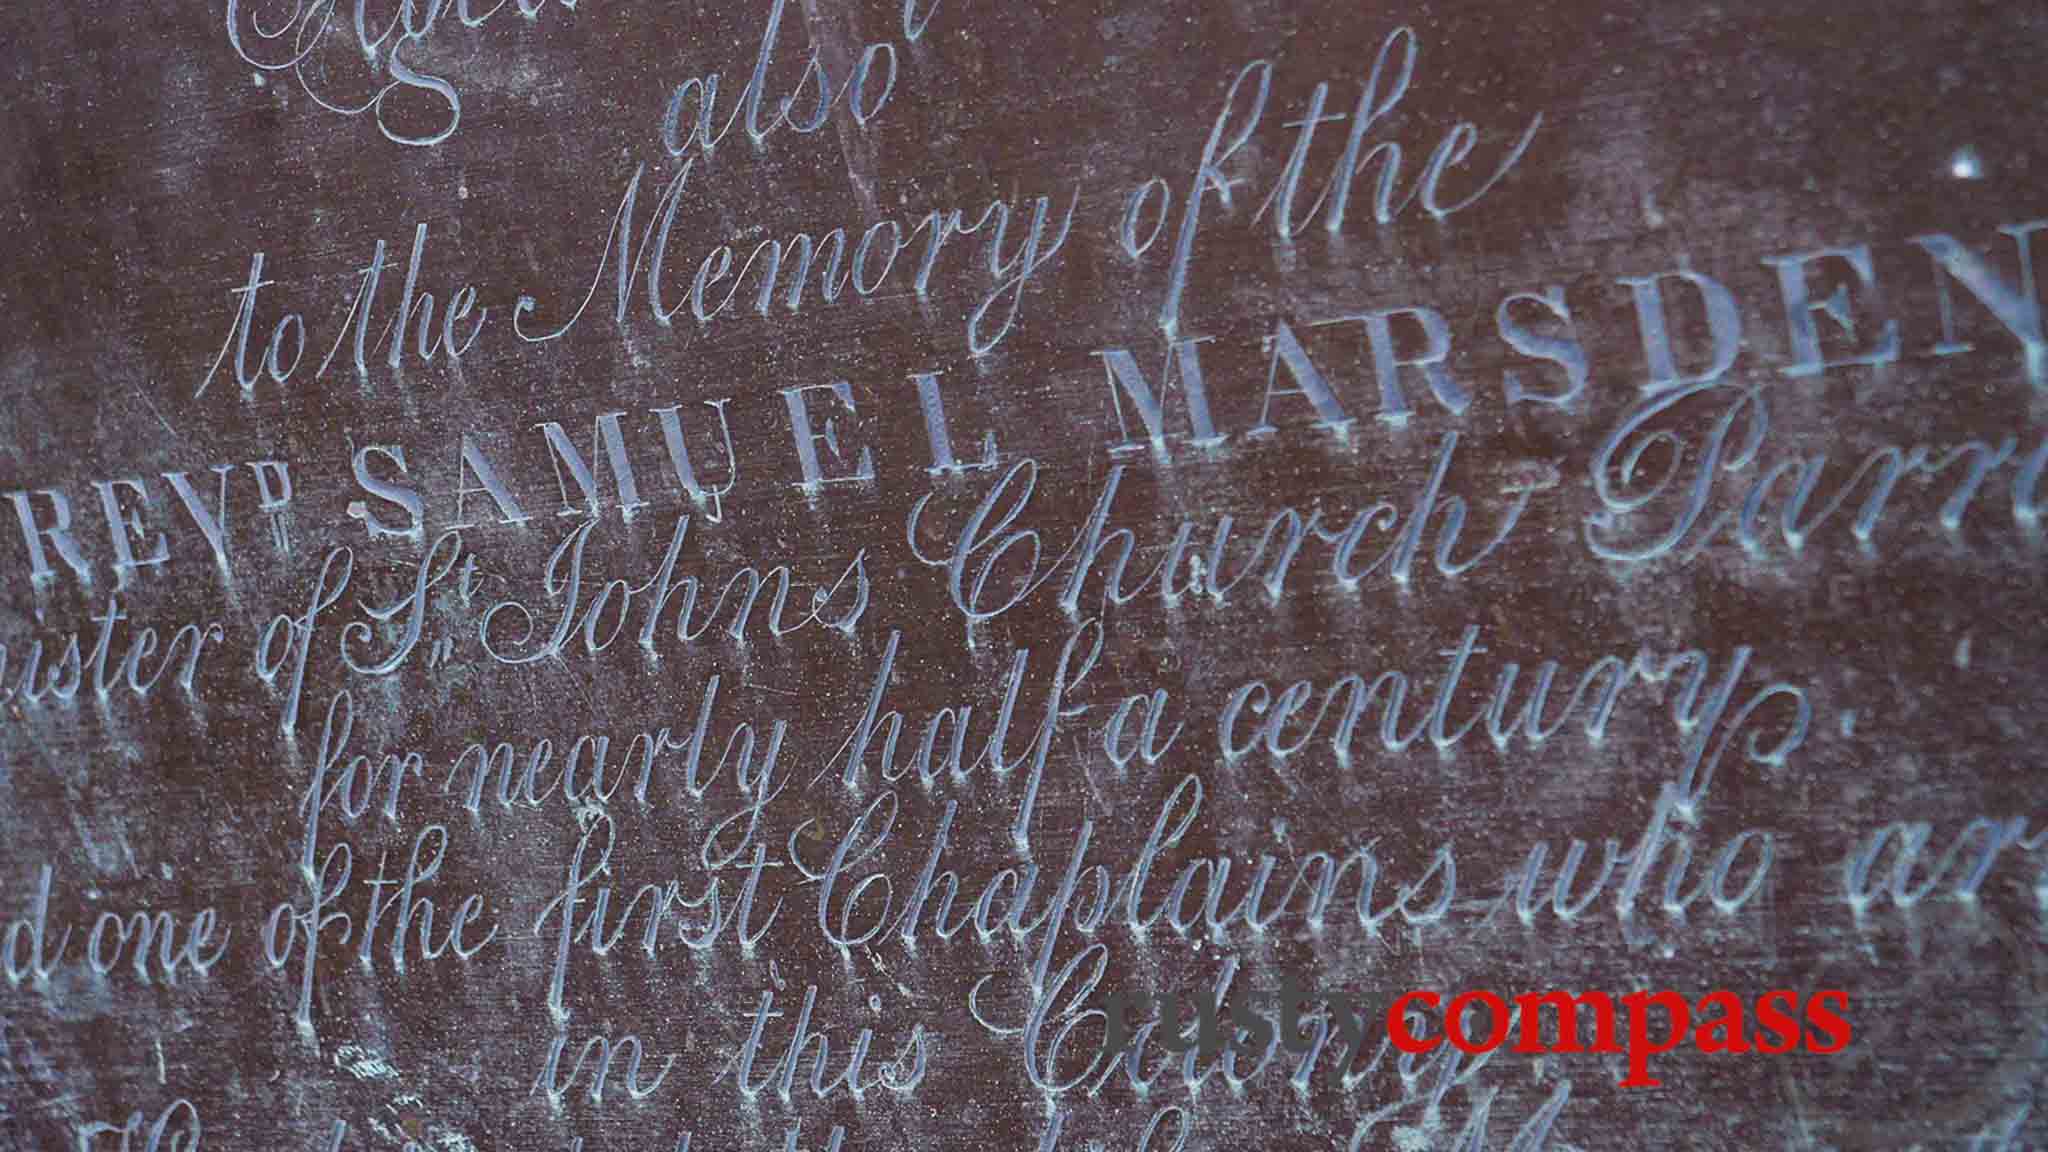 also
to the Memory of the
REVD SAMUEL MARSDEN
of St Johns Church
for nearly half a century.
one of the first Chaplains who
in this Colony
rustycompass